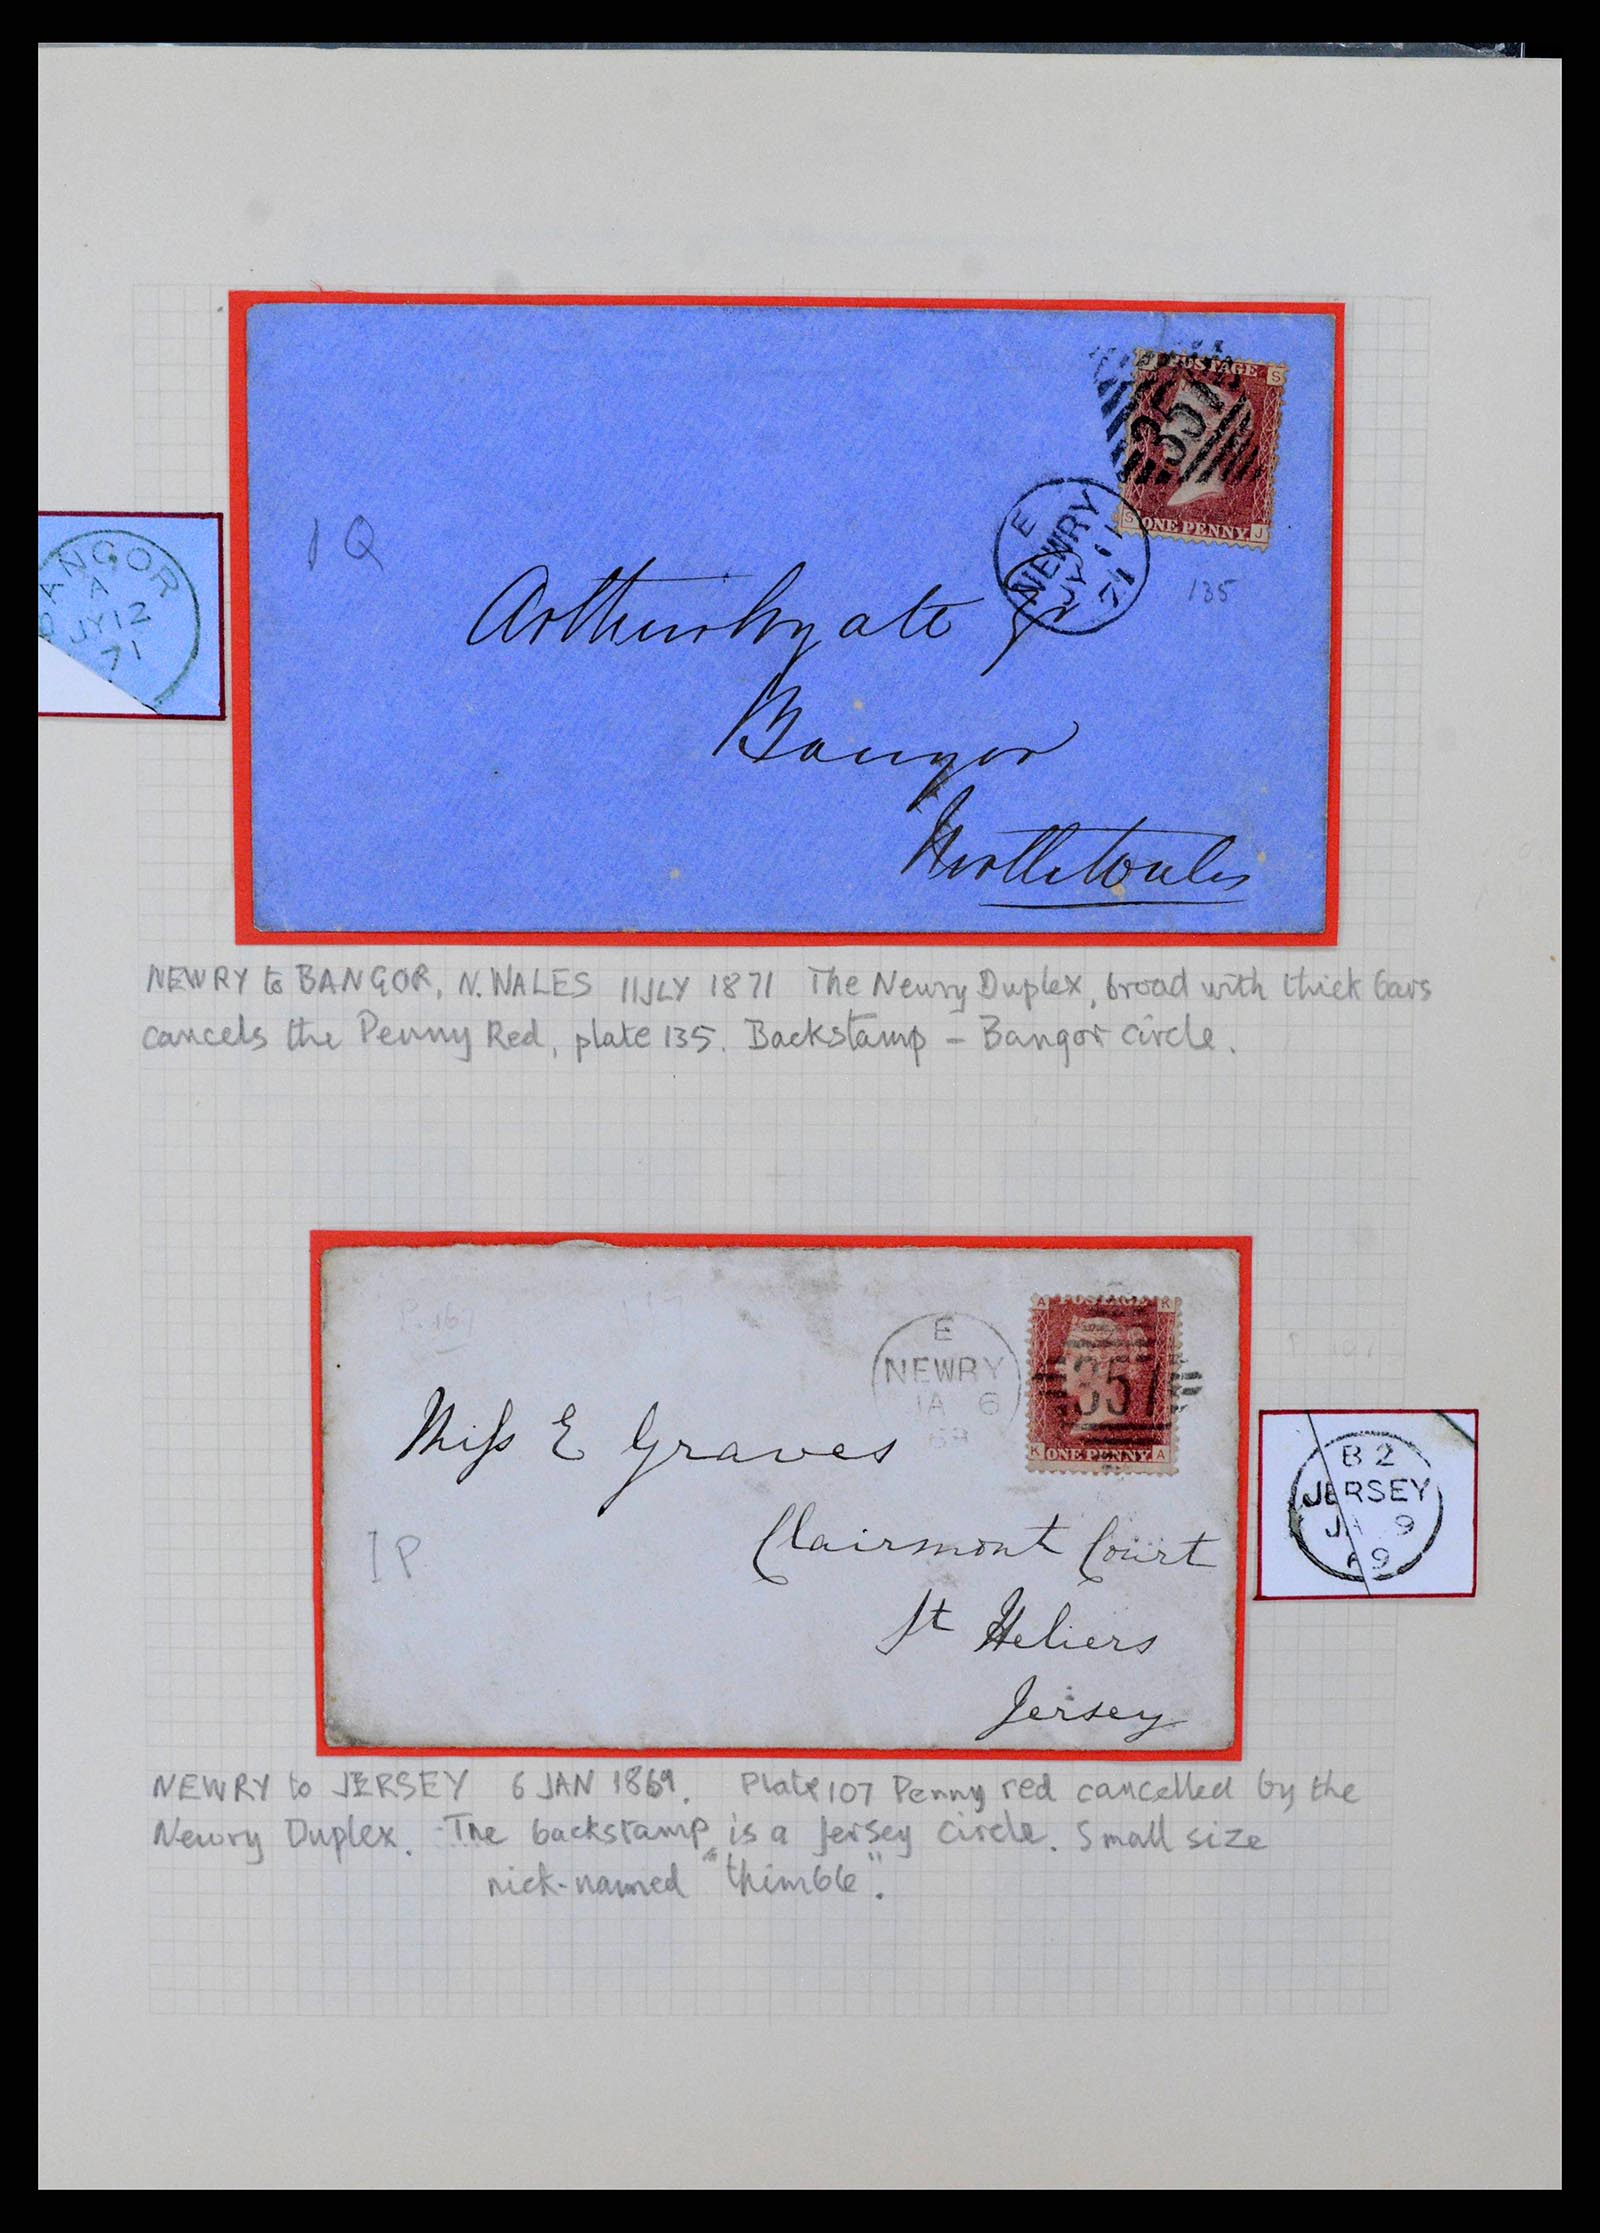 POSTAGE
S
357
S ONE PENNY J
E
NEWRY
JY 11
71
135
1Q
BANGOR
A
JY 12
71
Bangor
North Wales
NEWRY to BANGOR, N. WALES 11JLY 1871 The Newry Duplex, broad with thick bars
cancels the Penny Red, plate 135. Backstamp – Bangor circle.
A POSTAGE K
357
K ONE PENNY A
E
NEWRY
JA 6
69
Miss E Graves
Clairmont Court
St Heliers
Jersey
IP
B 2
JERSEY
JA 9
69
NEWRY to JERSEY 6 JAN 1869. Plate 107 Penny red cancelled by the
Newry Duplex. The backstamp is a Jersey circle. Small size
nick-named "thimble".